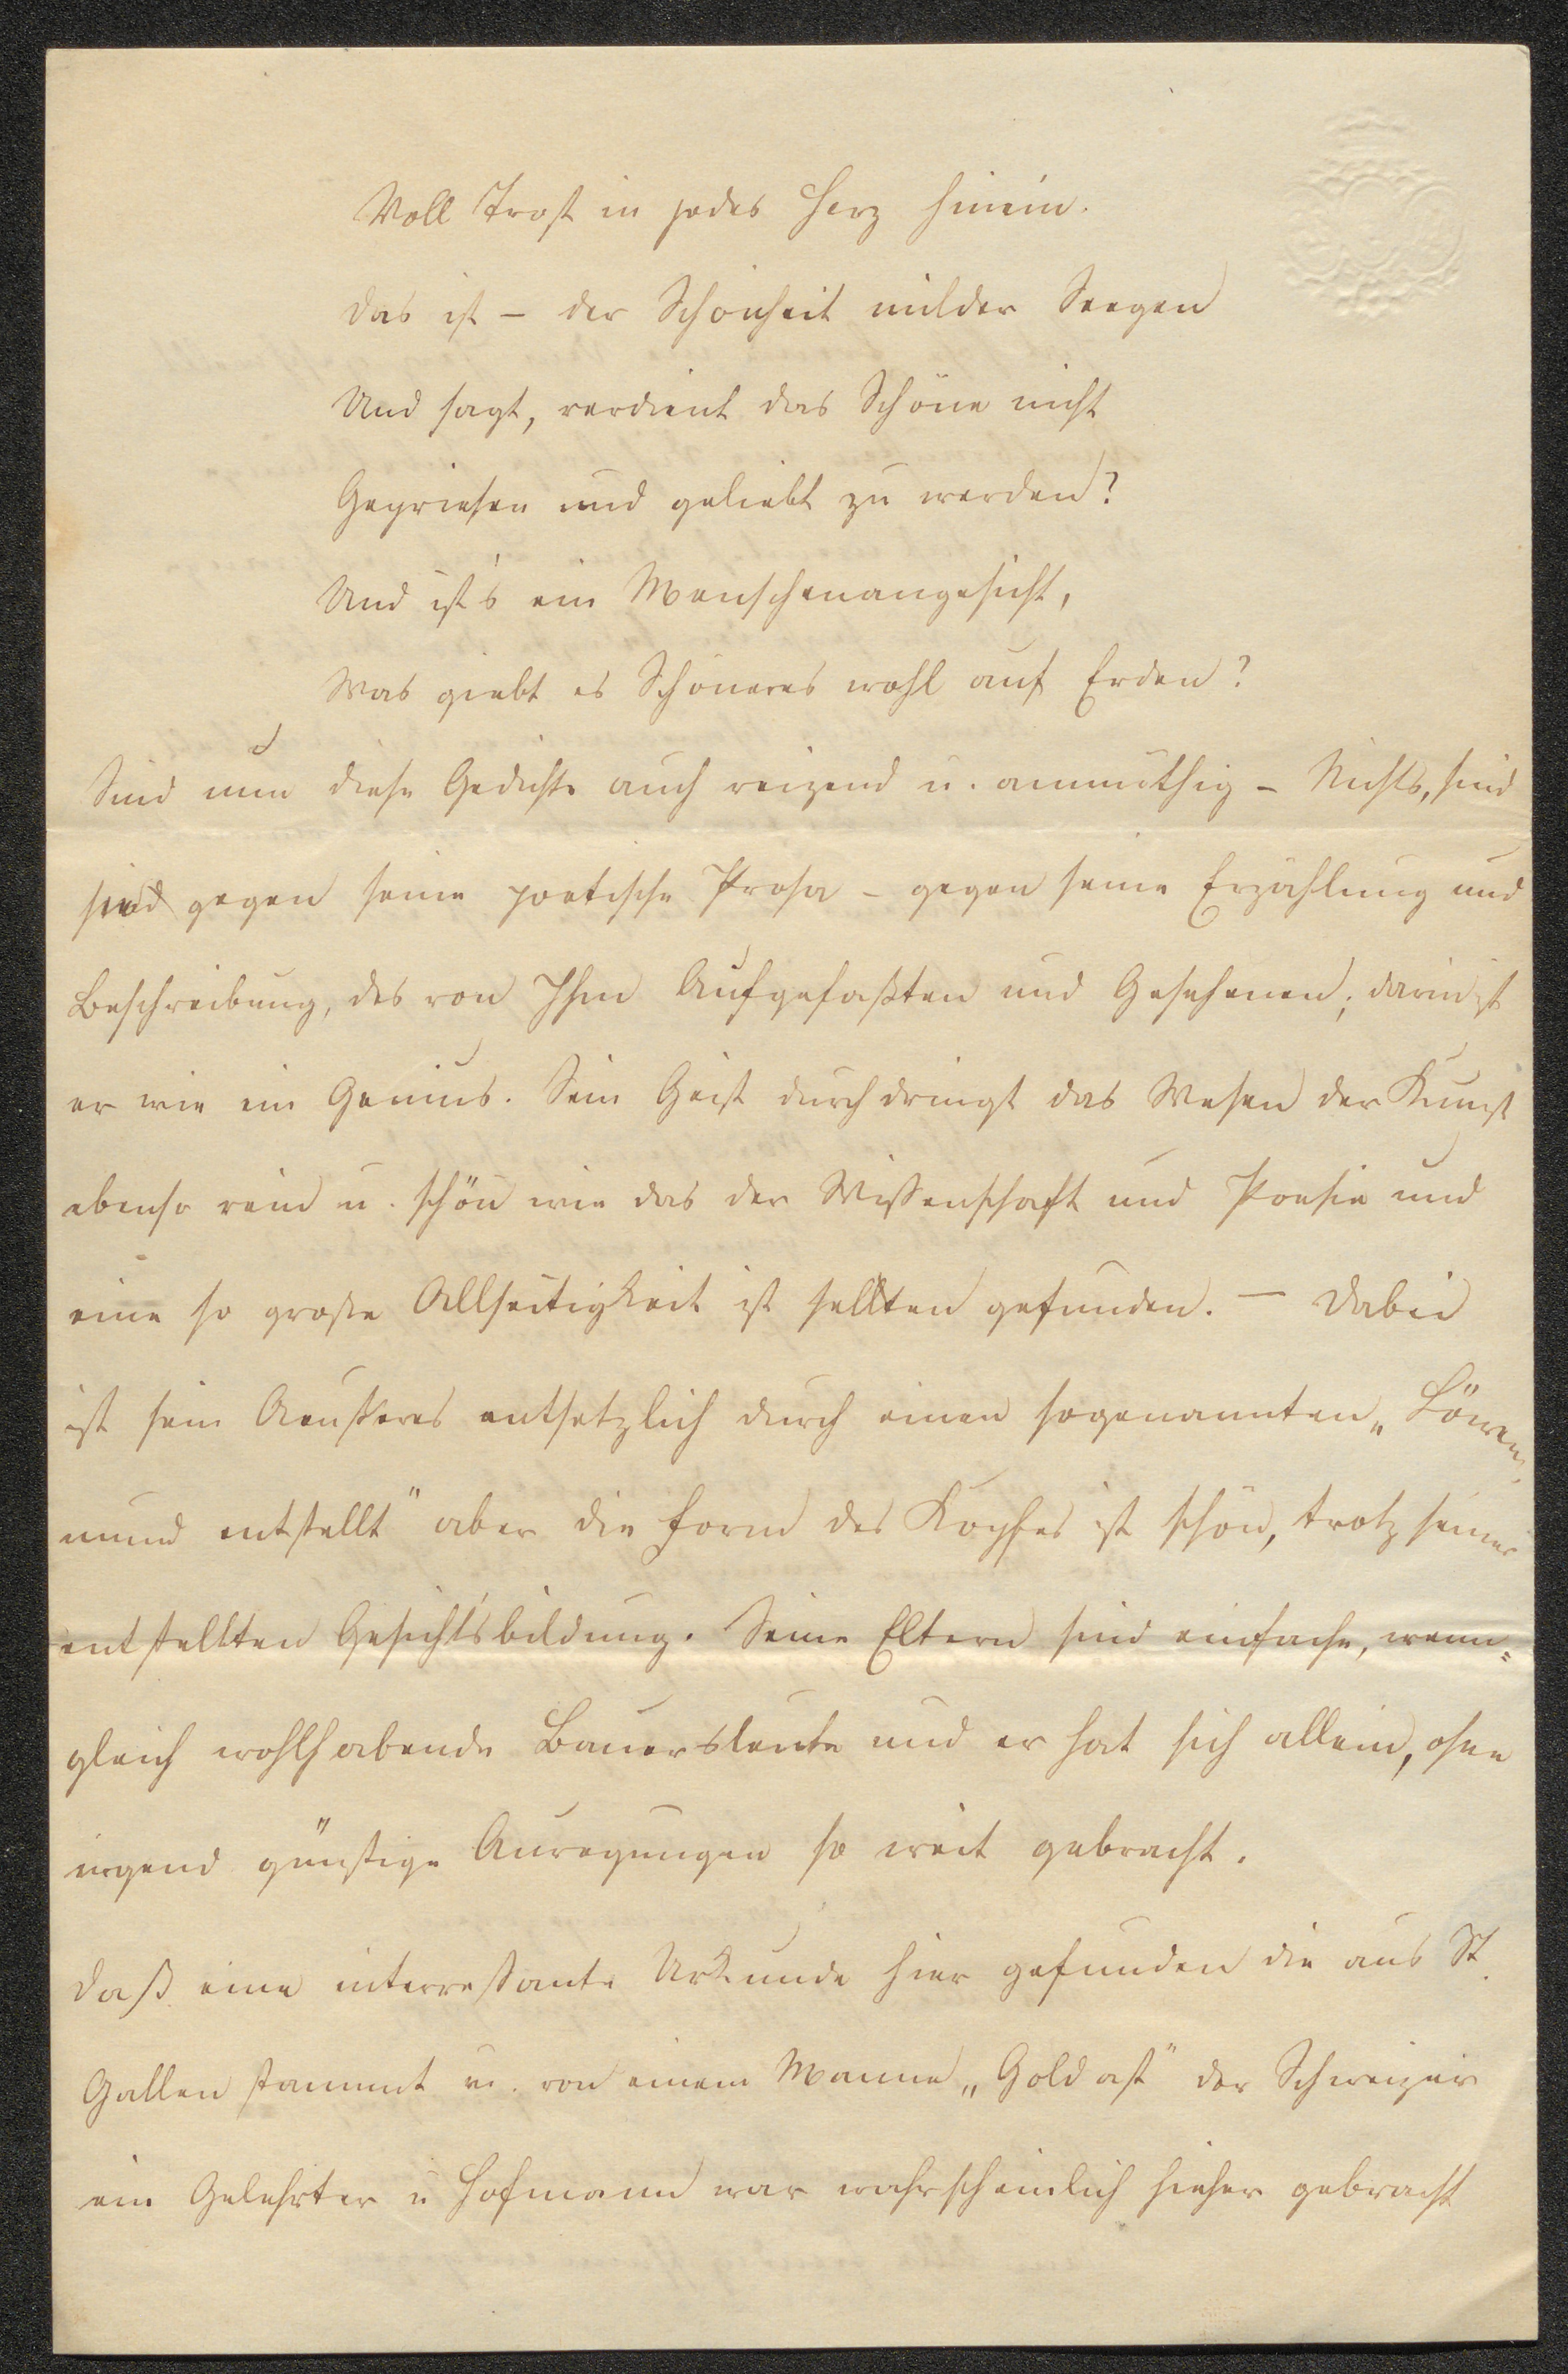 Voll Trost in jedes Herz hinein.
Das ist – der Schönheit milder Seegen
Und sagt, verdient das Schöne nicht
Gepriesen und geliebt zu werden?
Und ist's ein Menschenangesicht,
Was giebt es Schöneres wohl auf Erden?
Sind nun diese Gedichte auch reizend u. anmuthig – Nichts, sind
sind gegen seine poetische Prosa – gegen seine Erzählung und
Beschreibung, des von Ihm Aufgefaßten und Gesehenen; darin ist
er wie ein Genius. Sein Geist durchdringt das Wesen der Kunst
ebenso rein u. schön wie das der Wissenschaft und Poesie und
eine so große Allseitigkeit ist sellten gefunden. – Dabei
ist sein Aeußeres entsetzlich durch einen sogenannten „Löwen-
mund entstellt" aber die Form des Kopfes ist schön, trotz seiner
entstellten Gesichtsbildung. Seine Eltern sind einfache, wenn=
gleich wohlhabende Bauersleute und er hat sich allein, ohne
irgend günstige Anregungen so weit gebracht.
Daß eine interressante Urkunde hier gefunden die aus St.
Gallen stammt u. von einem Manne „Goldast" der Schweizer
ein Gelehrter u Hofmann war wahrscheinlich hieher gebracht